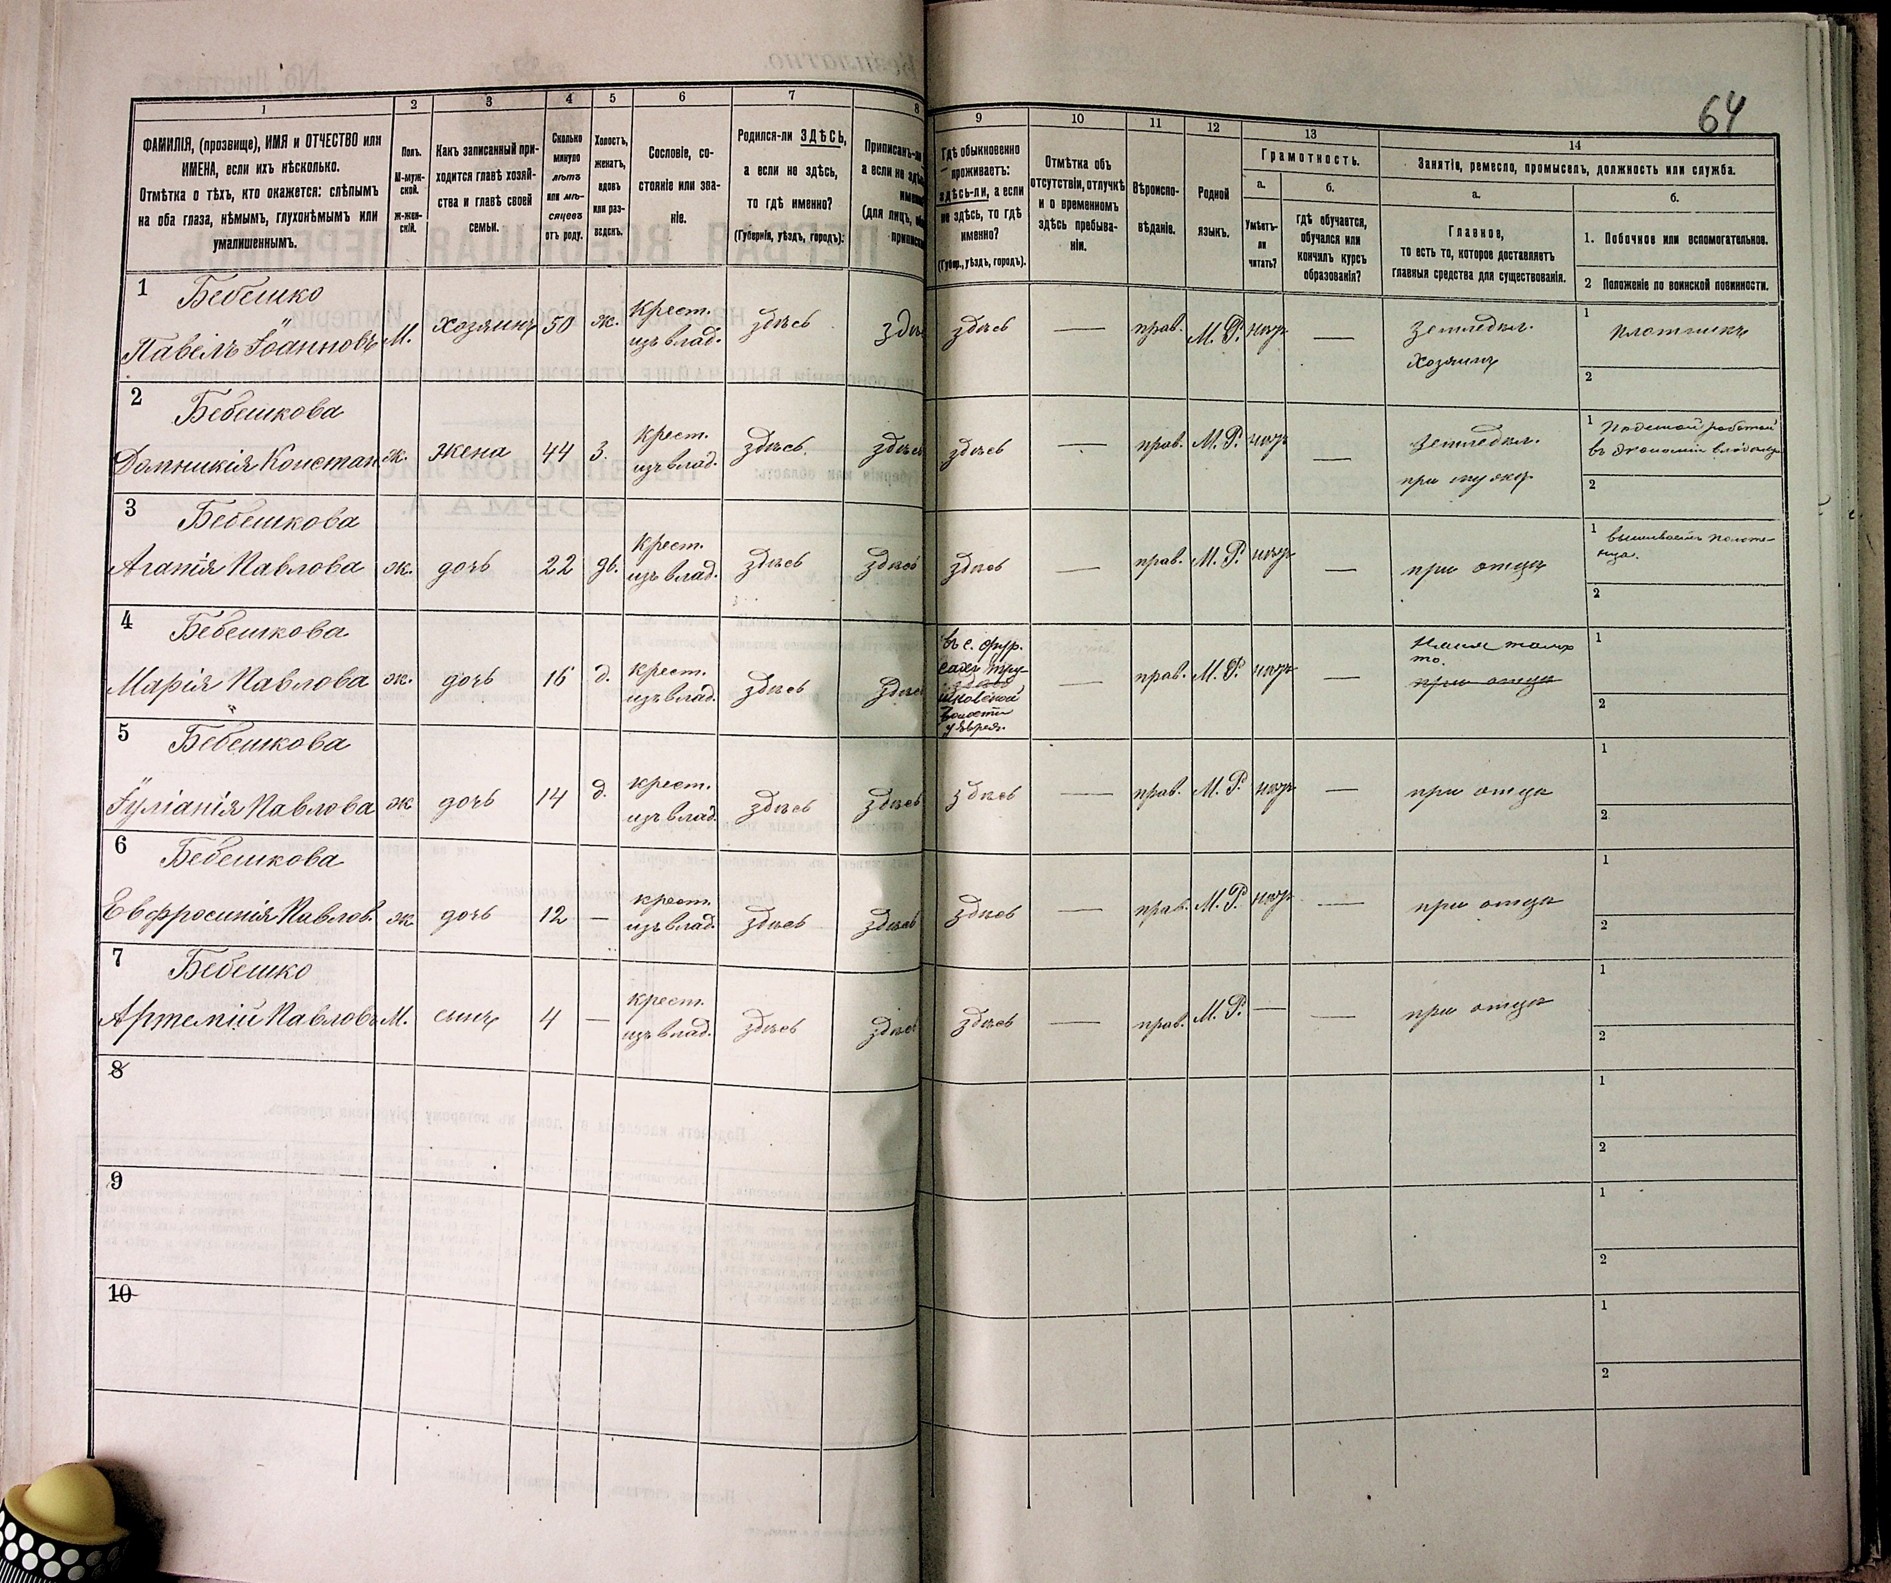 64
1
2
3
4
5
6
7
8
9
10
11
12
13
14
ФАМИЛІЯ, (прозвище), ИМЯ и ОТЧЕСТВО или
ИМЕНА, если ихъ нѣсколько.
Отмѣтка о тѣхъ, кто окажется: слѣпымъ
на оба глаза, нѣмымъ, глухонѣмымъ или
умалишеннымъ.
Полъ.
М-муж-
ской.
ж-жен-
скій.
Какъ записанный при-
ходится главѣ хозяй-
ства и главѣ своей
семьи.
Сколько
минуло
лѣтъ
или мѣ-
сяцевъ
отъ роду.
Холостъ,
женатъ,
вдовъ
или раз-
веденъ.
Сословіе, со-
стояніе или зва-
ніе.
Родился-ли ЗДѢСЬ,
а если не здѣсь,
то гдѣ именно?
(Губернія, уѣздъ, городъ).
Приписанъ-ли
а если не здѣ
(для лицъ,
Гдѣ обыкновенно
проживаетъ:
здѣсь-ли, а если
не здѣсь, то гдѣ
именно?
(Губер., уѣздъ, городъ).
Отмѣтка объ
отсутствіи, отлучкѣ
и о временномъ
здѣсь пребыва-
ніи.
Вѣроиспо-
вѣданіе.
Родной
языкъ.
Грамотность.
а.
б.
Умѣетъ-
ли
читать?
гдѣ обучается,
обучался или
кончилъ курсъ
образованія?
Занятія, ремесло, промыселъ, должность или служба.
а.
б.
Главное,
то есть то, которое доставляетъ
главныя средства для существованія.
1. Побочное или вспомогательное.
2 Положеніе по воинской повинности.
1
Бебешко
Павелъ Іоанновъ М. хозяинъ 50 ж. крест. изъ влад. здѣсь здѣ здѣсь — прав. М. Р. нѣтъ — Земледѣл. Хозяинъ
1 плотникъ
2
2
Бебешкова
Домникія Констан ж. жена 44 з. крест. изъ влад. здѣсь. здѣсь здѣсь — прав. М. Р. нѣтъ — Земледѣл. при мужѣ
1 Поденной работой
въ экономіи
2
3
Бебешкова
Агапія Павлова ж. дочь 22 дѣ. крест. изъ влад. здѣсь здѣсь здѣсь — прав. М. Р. нѣтъ — при отцѣ
1 вышиваетъ полоте-
нца.
2
4
Бебешкова
Марія Павлова ж. дочь 16 д. крест. изъ влад. здѣсь здѣсь
въ с.
волости
у еврея.
— прав. М. Р. нѣтъ —
при отцѣ
1
2
5
Бебешкова
Іуліанія Павлова ж дочь 14 д. крест. изъ влад. здѣсь здѣсь здѣсь — прав. М. Р. нѣтъ — при отцѣ
1
2
6
Бебешкова
Евфросинія Павлов. ж дочь 12 — крест. изъ влад. здѣсь здѣсь здѣсь — прав. М. Р. нѣтъ — при отцѣ
1
2
7
Бебешко
Артемій Павловъ М. сынъ 4 — крест. изъ влад. здѣсь здѣсь здѣсь — прав. М. Р. — — при отцѣ
1
2
8
1
2
9
1
2
10
1
2